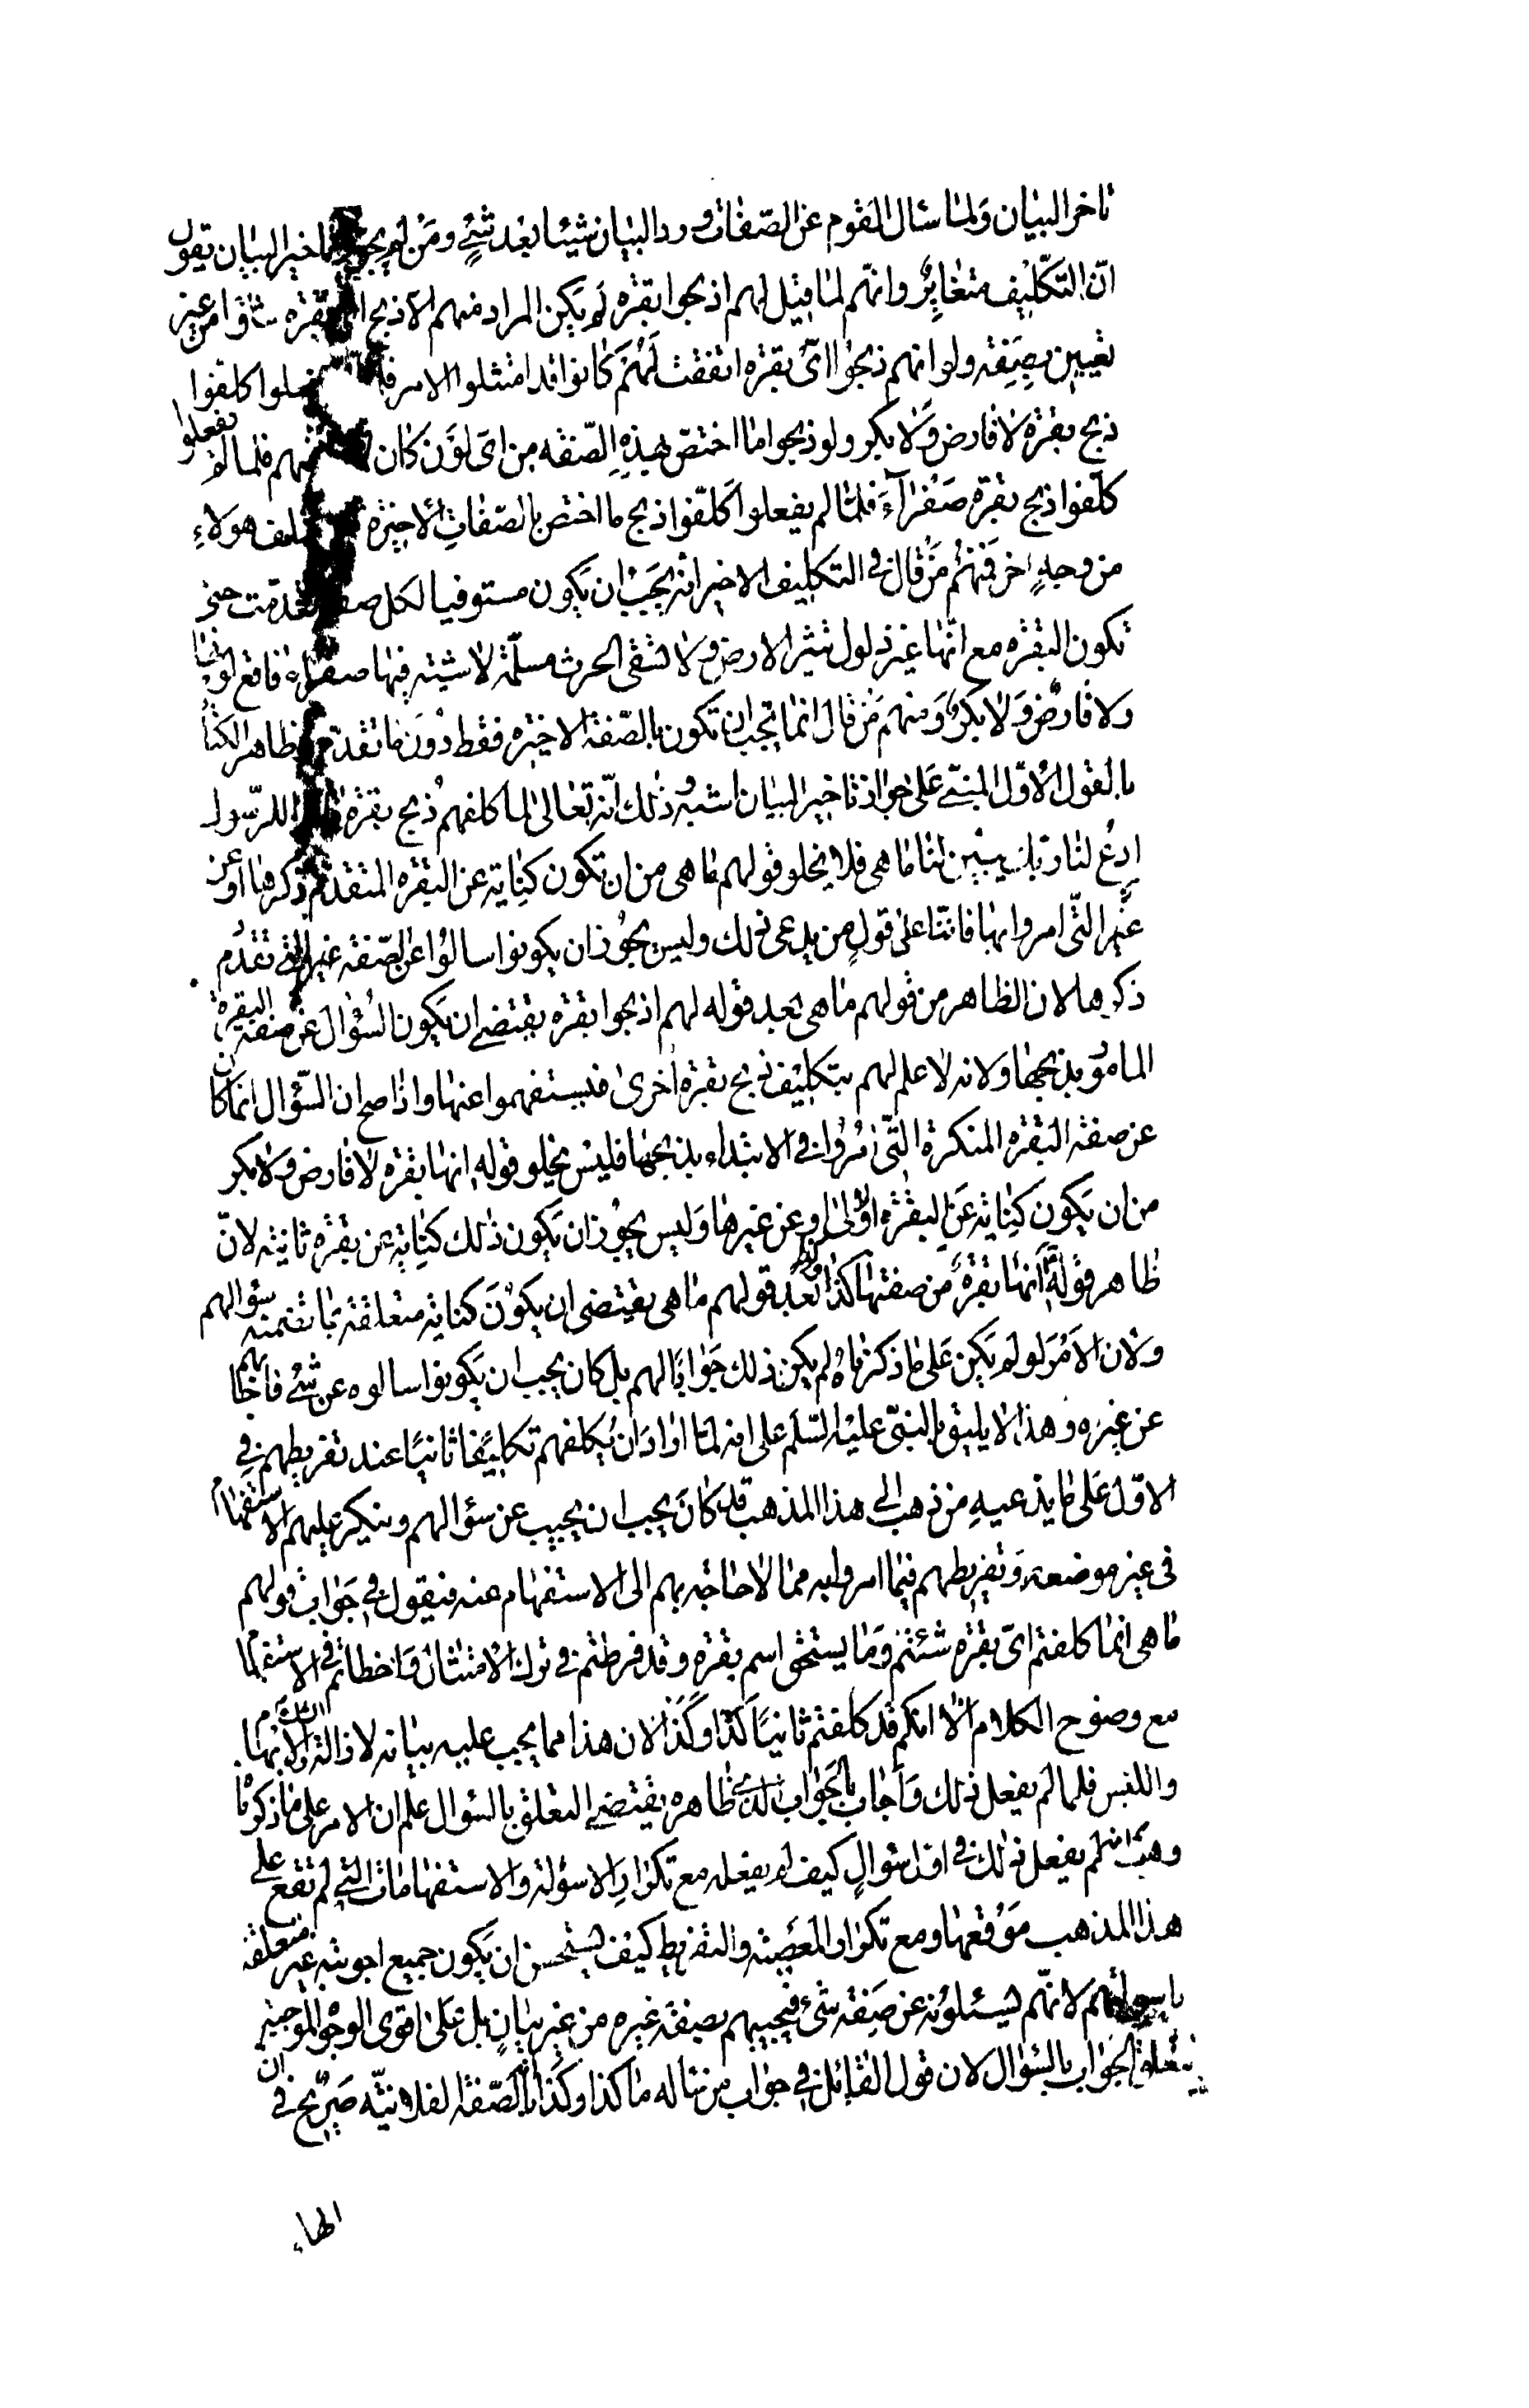 تاخر البيان ولما سئال القوم عن الصّفات ورد البيان شيئا بعد شئ ومن لم يجوز تاخير البيان يقول
انّ التكليف متغاير وانّهم لما قيل لهم اذبحوا بقرة لم يكن المراد منهم الا ذبح اى بقرة شاؤا من غير
تعيين بصفة ولو انهم ذبحوا اىّ بقرة اتفقت لهم كانوا قد امتثلوا الامر فلما يفعلوا كلفوا
ذبح بقرة لا فارض ولا بكر ولو ذبحوا ما اختصّ بهذه الصّفه من اى لون كان منهم فلما لم يفعلوا
كلّفوا ذبح بقرة صفراء فلمّا لم يفعلوا كلّفوا ذبح ما اختص بالصّفات الاخيرة هولاء
من وجه اخر فمنهم من قال فى التكليف الاخير انه يجب ان يكون مستوفيا لكل صفة تقدّمت حتى
تكون البقرة مع انّها غير ذلول تثير الارض ولا تسقى الحرث مسلّمة لا شية فيها صفراء فاقع لونها
ولا فارض ولا بكر ومنهم من قال انما يجب ان تكون بالصّفة الاخيرة فقط دون ما تقدّم وظاهر الكتاب
بالقول الاوّل المبنىّ على جواز تاخير البيان اشبه وذلك انّه تعالى لما كلفهم ذبح بقرة للرّسول
ادع لنا ربّك يبيّن لنا ما هى فلا يخلو قولهم ما هى من ان تكون كناية عن البقرة المتقدّم ذكرها او عن
غير التّى امروا بها ثانيا على قول من يدعى ذلك وليس يجوز ان يكونوا سالوا عن الصّفة غير التى تقدّم
ذكرها لان الظاهر من قولهم ما هى بعد قوله لهم اذبحوا بقرة يقتضى ان يكون السؤال عن صفة البقرة
المامور بذبحها ولانه لا علم لهم بتكليف ذبح بقرة اخرى فيستفهموا عنها واذا صح ان السّؤال انما كان
عن صفة البقرة المنكرة التّى امروا فى الابتداء بذبحها فليس يخلو قوله انها بقرة لا فارض ولا بكر
من ان يكون كناية عن البقرة اولى او عن غيرها وليس يجوز ان يكون ذلك كناية عن بقرة ثانية لانّ
ظاهر قوله انّها بقرة من صفتها كذا وكذا بعد قولهم ما هى يقتضى ان يكون كناية متعلقة بما تضمنه سؤالهم
ولان الامر لو لم يكن على ما ذكرناه لم يكن ذلك جوابا لهم بل كان يجب ان يكونوا سالوه عن شئ فاجابهم
عن غيره وهذا لا يليق بالنبىّ عليه السّلم على انه لمّا اراد ان يكلفهم تكليفا ثانيا عند تفريطهم فى
الاوّل على ما يدعيه من ذهب الى هذا المذهب قد كان يجب ان يجيب عن سؤالهم وينكر عليهم الاستفهام
فى غير موضعه وتفريطهم فيما امروا به مما لا حاجة بهم الى الاستفهام عنه فيقول فى جواب قولهم
ما هى انما كلفتم اىّ بقرة شئتم وما يستحق اسم بقرة وقد فرطتم فى ترك الامتثال واخطاتم فى الاستفهام
مع وضوح الكلام الا انكم قد كلفتم ثانيا كذا وكذا لان هذا مما يجب عليه بيانه لازالة الشك والابهام
واللبس فلما لم يفعل ذلك واجاب بالجواب الذى ظاهره يقتضى التعلق بالسؤال علم ان الامر على ما ذكرنا
وهب انه لم يفعل ذلك فى اول سؤال كيف لم يفعله مع تكرار الاسؤلة والاستفهامات التى لم تقع على
هذا المذهب موقعها ومع تكرار المعصية والتفريط كيف يستحسن ان يكون جميع اجوبته غير متعلقة
باسولتهم لانّهم يسئلونه عن صفة شئ فيجيبهم بصفة غيره من غير بيان بل على اقوى الوجوه الموجبة
لتعلق الجواب بالسؤال لان قول القائل فى جواب من ساله ما كذا وكذا انه بالصّفة الفلانيّة صريح فى ان
الهاء